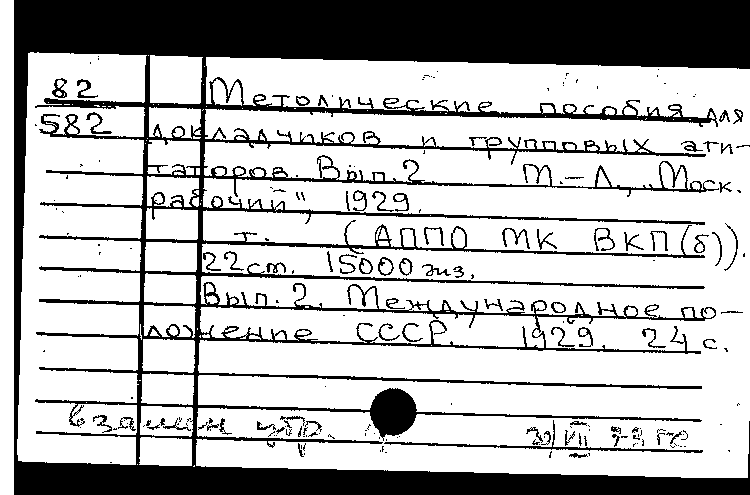 82 Методические пособия для
582 докладчиков и групповых аги-
таторов. Вып. 2 М.–Л., „Моск.
рабочий", 1929.
т. (АППО МК ВКП(б)).
22 ст. 15000 экз.
Вып. 2. Международное по-
ложение СССР. 1929. 24 с.
взамен утр. 30/VII